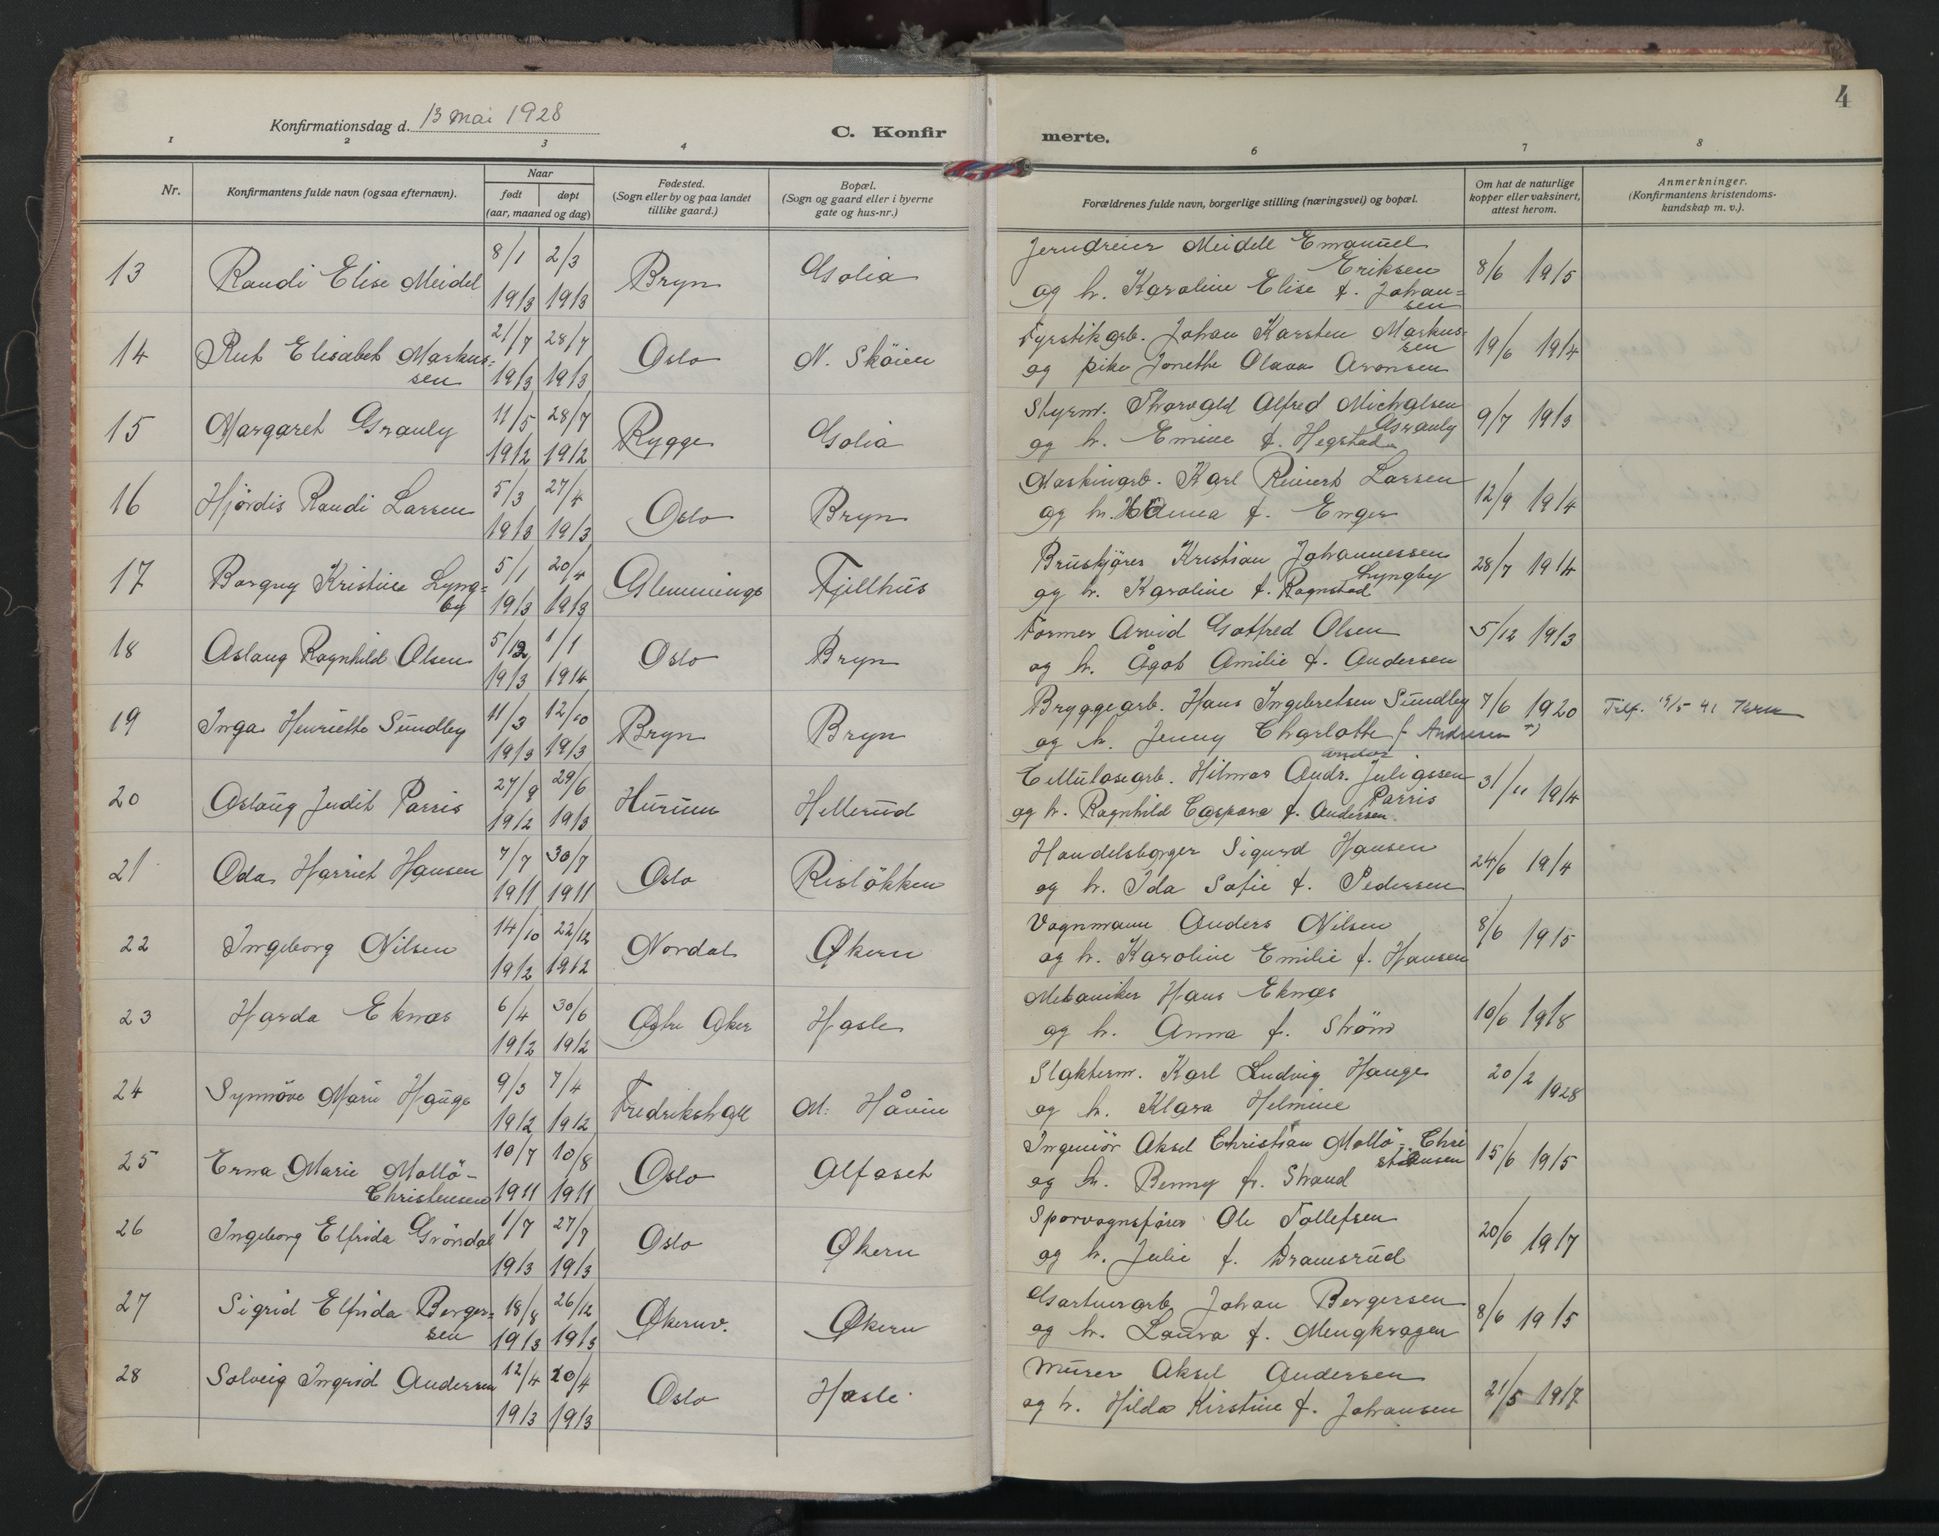 4
Konfirmationsdag d. 13 mai 1928
C. Konfir merte.
1 2 3 4 6 7 8
Nr.
Konfirmantens fulde navn (ogsaa efternavn).
Naar
født døpt
(aar, maaned og dag)
Fødested.
(Sogn eller by og paa landet
tillike gaard.)
Bopæl.
(Sogn og gaard eller i byerne
gate og hus-nr.)
Forældrenes fulde navn, borgerlige stilling (næringsvei) og bopæl.
Om hat de naturlige
kopper eller vaksinert,
attest herom.
Anmerkninger.
(Konfirmantens kristendoms-
kundskap m. v.).
13 Randi Elise Meidel 8/1 1913 2/3 1913 Bryn Golia
Jerndreier Meidell Emanuel
Eriksen
og h. Karoline Elise f. Johan=
sen
8/6 1915
14 Rut Elisabet Markus-
sen
21/7 1913 28/7 1913 Oslo N. Skøien
Fyrstikarb. Johan Karsten Markus-
sen
og pike Jonette Olava Aronsen
19/6 1914
15 Margaret Grauly 11/5 1912 28/7 1912 Rygge Golia
Styrm. Thorvald Alfred Michalsen
Grauly
og h. Emilie f. Hegstad
9/7 1913
16 Hjørdis Randi Larsen 5/3 1913 27/4 1913 Oslo Bryn
Maskinarb. Karl Reinert Larsen
og h. Anna f. Enger
12/9 1914
17 Borgny Kristine Lyng=
by
5/1 1913 20/4 1913 Glemminge Fjellhus
Bruskjører Kristian Johannessen
Lyngby
og h. Karoline f. Rognstad
28/7 1914
18 Aslaug Ragnhild Olsen 5/12 1913 1/1 1914 Oslo Bryn
Former Arvid Gotfred Olsen
og h. Ågot Amilie f. Andersen
5/12 1913
19 Inga Henriette Sundby 11/3 1913 12/10 1913 Bryn Bryn
Bryggearb. Hans Ingebretsen Sundby
og h. Jenny Charlotte f. Andresen
7/6 1920
20 Aslaug Judit Parris 27/9 1912 29/6 1913 Hurum Hellerud
Cellulosearb. Hilmar Andr. Juliussen
Parris
og h. Ragnhild Caspara f. Andersen.
31/11 1914
21 Oda Harriet Hansen 7/7 1911 30/7 1911 Oslo Risløkken
Handelsborger Sigurd Hansen
og h. Ida Sofie f. Pedersen
24/6 1914
22 Ingeborg Nilsen 14/10 1912 22/12 1912 Nordal Økern
Vognmann Anders Nilsen
og h. Karoline Emilie f. Hansen
8/6 1915
23 Harda Eknæs 6/4 1912 30/6 1912 Østre Aker Hasle
Mekaniker Hans Eknæs
og h. Anna f. Strøm
10/6 1918
24 Synnøve Marie Hauge 9/3 1912 7/4 1912 Fredrikshall N. Høvin
Slakterm. Karl Ludvig Hauge
og h. Klara Helmine
20/2 1928
25 Erna Marie Mollö-
Christensen
10/7 1911 10/8 1911 Oslo Alfaset
Ingeniör Aksel Christian Mollö-Chri
stensen
og h. Benny f. Strand
15/6 1915
26 Ingeborg Elfrida Gröndal 1/7 1913 27/7 1913 Oslo Økern
Sporvognsfører Ole Tollefsen
og h. Julie f. Dramsrud
20/6 1917
27 Sigrid Elfrida Berger=
sen
18/8 1913 26/12 1913 Økernv. Økern
Gartnerarb Johan Bergersen
og h. Laura f. Mengkragen
8/6 1915
28 Solveig Ingrid Andersen 12/4 1913 20/4 1913 Oslo Hasle
Murer Aksel Andersen
og h. Hilda Kirstine f. Johansen
21/5 1917